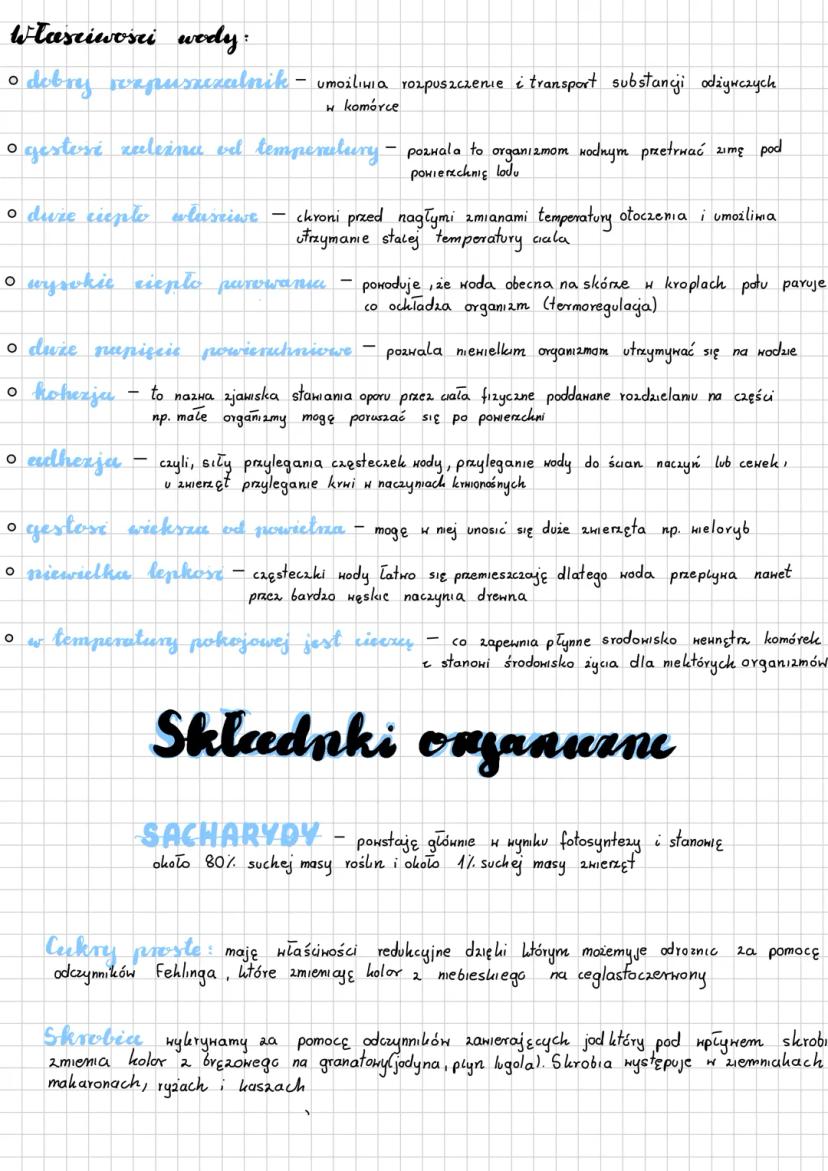 Właściwości wody:
dobry rozpuszczalnik – umożliwia rozpuszczenie i transport substancji odżywczych
w komórce
gęstość zależna od temperatury – pozwala to organizmom wodnym przetrwać zimę pod
powierzchnię lodu
duże ciepło właściwe – chroni przed nagłymi zmianami temperatury otoczenia i umożliwia
utrzymanie stałej temperatury ciała
wysokie ciepło parowania – powoduje, że woda obecna na skórze w kroplach potu paruje
co ochładza organizm (termoregulacja)
duże napięcie powierzchniowe – pozwala niewielkim organizmom utrzymywać się na wodzie
kohezja – to nazwa zjawiska stawiania oporu przez ciała fizyczne poddawane rozdzielaniu na części
np. małe organizmy mogę poruszać się po powierzchni
adhezja – czyli, siły przylegania cząsteczek wody, przyleganie wody do ścian naczyń lub cewek,
u zwierząt przyleganie krwi w naczyniach krwionośnych
gęstość większa od powietrza – mogę w niej unosić się duże zwierzęta np. wieloryb
niewielka lepkość – cząsteczki wody łatwo się przemieszczają dlatego woda przepływa nawet
przez bardzo wąskie naczynia drewna
w temperatury pokojowej jest cieczą – co zapewnia płynne środowisko wewnątrz komórek
i stanowi środowisko życia dla niektórych organizmów
Składniki organiczne
SACHARYDY – powstają głównie w wyniku fotosyntezy i stanowię
około 80% suchej masy roślin i około 1% suchej masy zwierząt
Cukry proste: maję właściwości redukcyjne dzięki którym możemyje odróżnic za pomocę
odczynników Fehlinga, które zmieniaję kolor z niebieskiego na ceglastoczerwony
Skrobia wykrywamy za pomocę odczynników zawierających jod który pod wpływem skrobi
zmienia kolor z brązowego na granatowy(jodyna, płyn lugola). Skrobia występuje w ziemniakach
makaronach, ryżach i kaszach